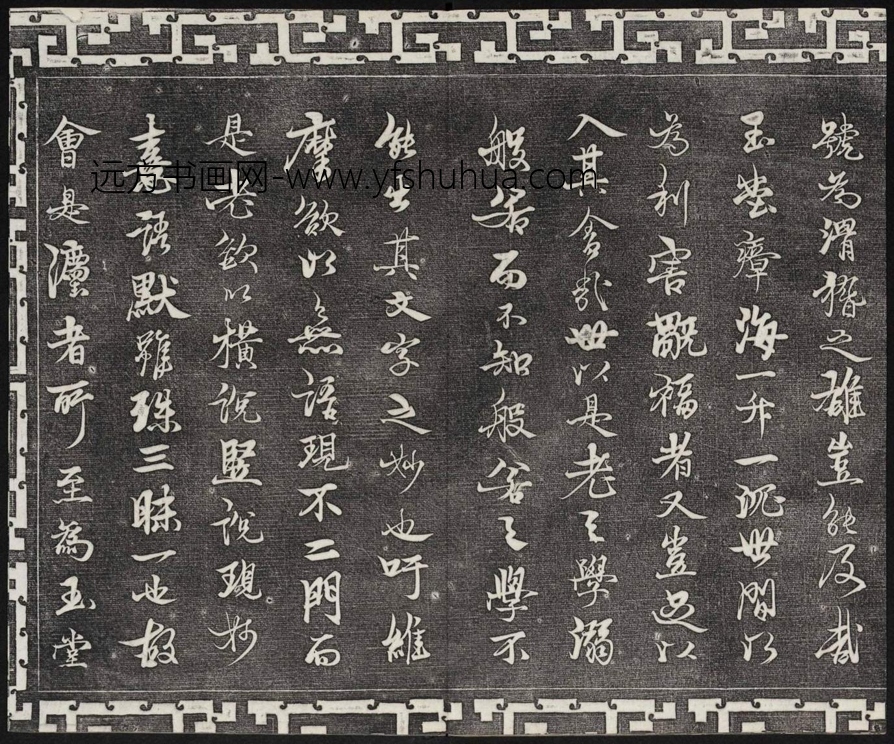 號為滑稽之雄豈能及哉
玉堂瘴海一升一沉世間以
為利害旤福者又豈足以
入其舍哉世以是老之學溺
般若而不知般若之學不
能出其文字之妙也吁維
摩欲以無語現不二門而
是老欲以橫說竪說現妙
喜語默雖殊三昧一也故
會是灋者所至為玉堂
远方书画网-www.yfshuhua.com